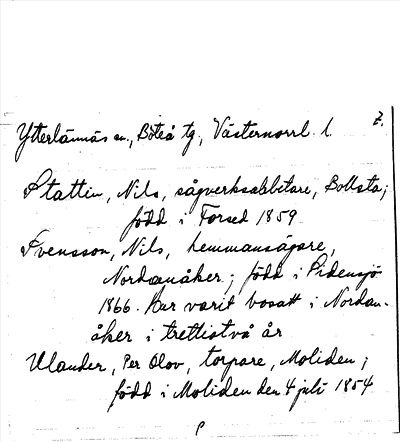 2.
Ytterlännäs sn., Boteå tg., Västernorrl. l.
Stattin, Nils, sågverksarbetare, Bollsta;
född i Forsed 1859
Svensson, Nils, hemmansägare,
Nordanåker; född i Sidensjö
1866. Har varit bosatt i Nordan-
åker i trettiotvå år
Ulander, Per Olov, torpare, Moliden;
född i Moliden den 4 juli 1854